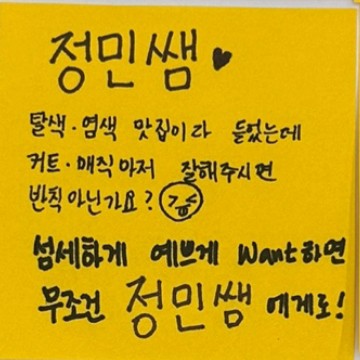 정민쌤♥
탈색·염색 맛집이라 듣었는데
커트·매직마저 잘해주시면
반칙 아닌가요?
섬세하게 예쁘게 Want하면
무조건 정민쌤에게로!